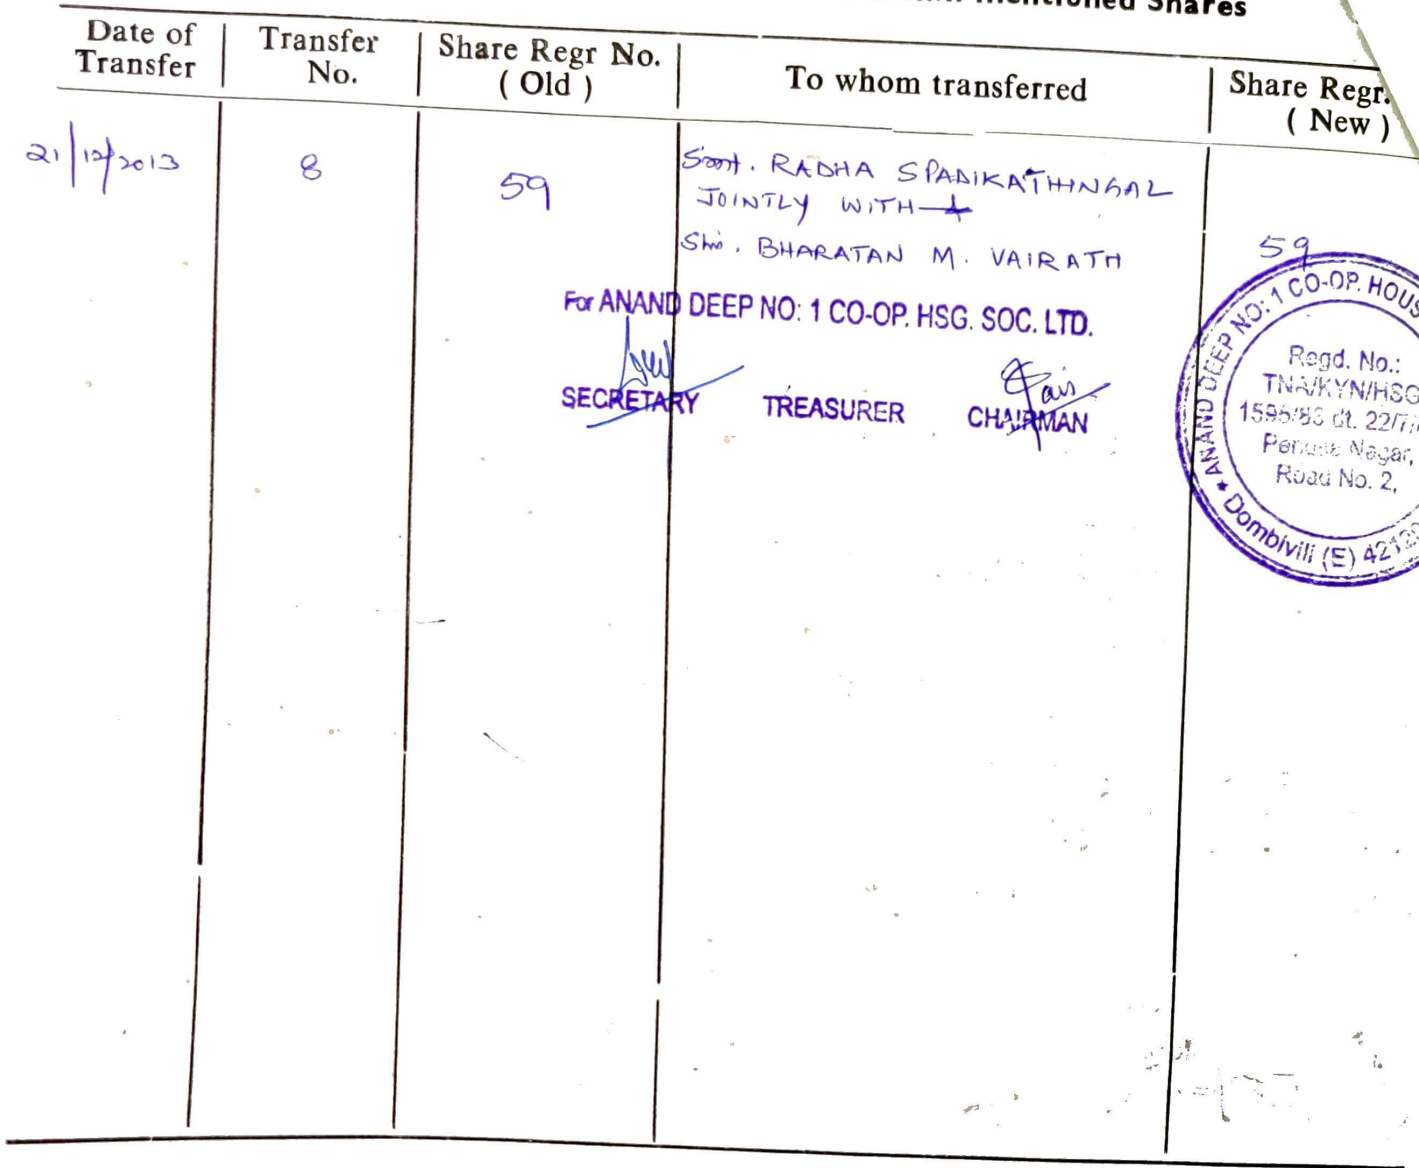 mentioned Shares
Date of Transfer
Transfer No.
Share Regr No. ( Old )
To whom transferred
Share Regr. ( New )
21/12/2013
8
59
Smt. RADHA SPADIKATHINGAL
JOINTLY WITH
Shri. BHARATAN M. VAIRATH
59
For ANAND DEEP NO: 1 CO-OP. HSG. SOC. LTD.
SECRETARY TREASURER CHAIRMAN
ANAND DEEP NO: 1 CO-OP. HOUS
Regd. No.:
TNA/KYN/HSG
1595/83 dt. 22/7/
Nagar,
Road No. 2,
Dombivili (E) 4212